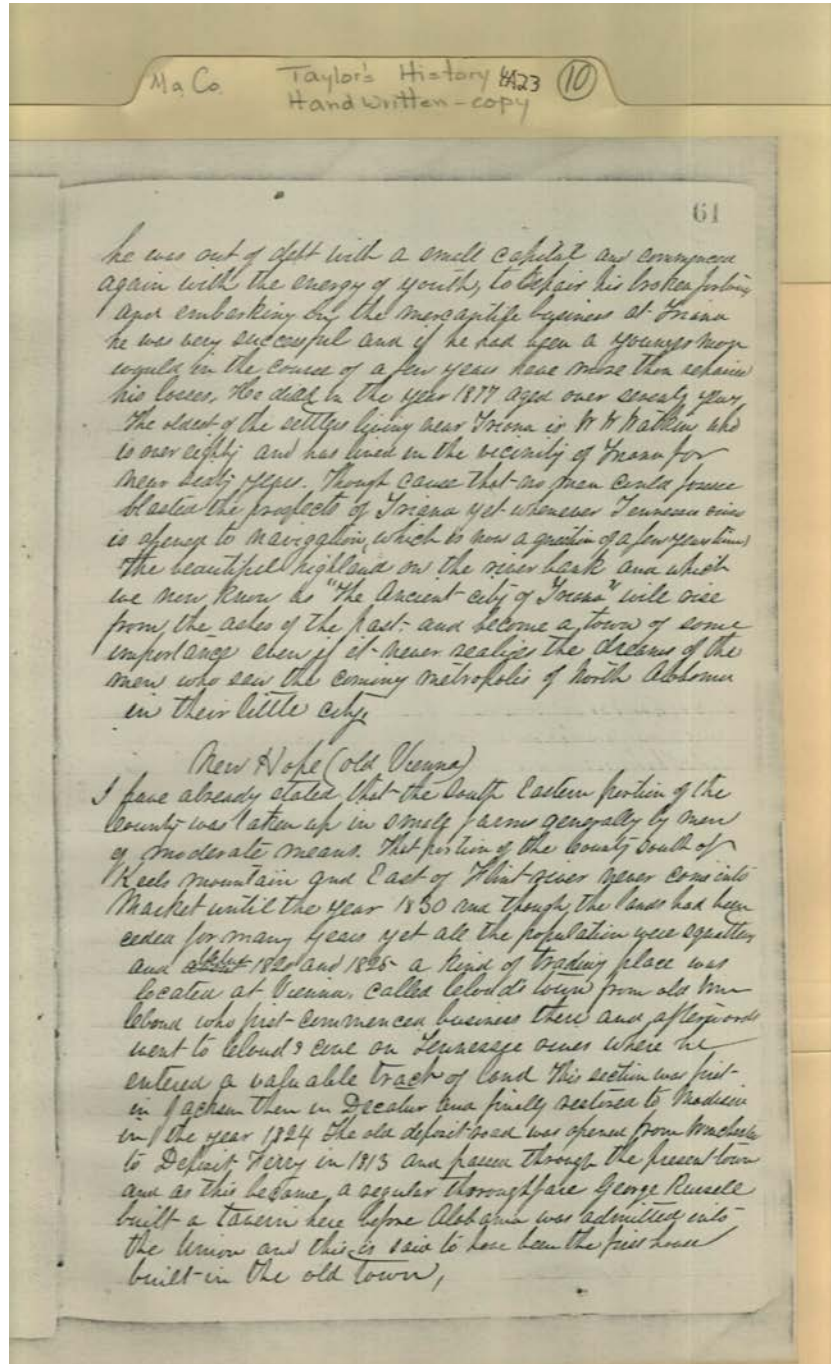 Ma. Co. Taylor's History 4A23 10
Handwritten-copy
61
he was out of debt with a small capital and commenced
again with the energy of youth, to repair his broken fortunes
and embarking in the mercantile business at Triana
he was very successful and if he had been a younger man
would in the course of a few years have more than repaired
his losses. He died in the year 1877 aged over seventy years
The oldest of the settlers living near Triana is W W Watkins who
is over eighty and has lived in the vicinity of Triana for
near sixty years. Though cause that no man could foresee
blasted the prospects of Triana yet whenever Tennessee river
is opened to navigation, which is now a question of a few years time,
The beautiful highland on the river bank and which
we now know as "The Ancient city of Triana" will rise
from the ashes of the past and become a town of some
importance even if it never realizes the dreams of the
men who saw the coming metropolis of North Alabama
in their little city,
New Hope (old Vienna)
I have already stated that the South Eastern portion of the
County was taken up in small farms generally by men
of moderate means. That portion of the County South of
Keels mountain and East of Flint river never come into
Market until the year 1830 and though the lands had been
ceded for many years yet all the population were squatters
and about 1820 and 1825 a kind of trading place was
located at Vienna, called Clouds town from old Wm
Cloud who first commenced business there and afterwards
went to Cloud's cove on Tennessee river where he
entered a valuable tract of land This section was first
in Jackson then in Decatur and finally restored to Madison
in the year 1824 The old deposit road was opened from Winchester
to Deposit Ferry in 1813 and passed through the present town
and as this became a regular thoroughfare George Russell
built a tavern here before Alabama was admitted into
the Union and this is said to have been the first house
built in the old town,